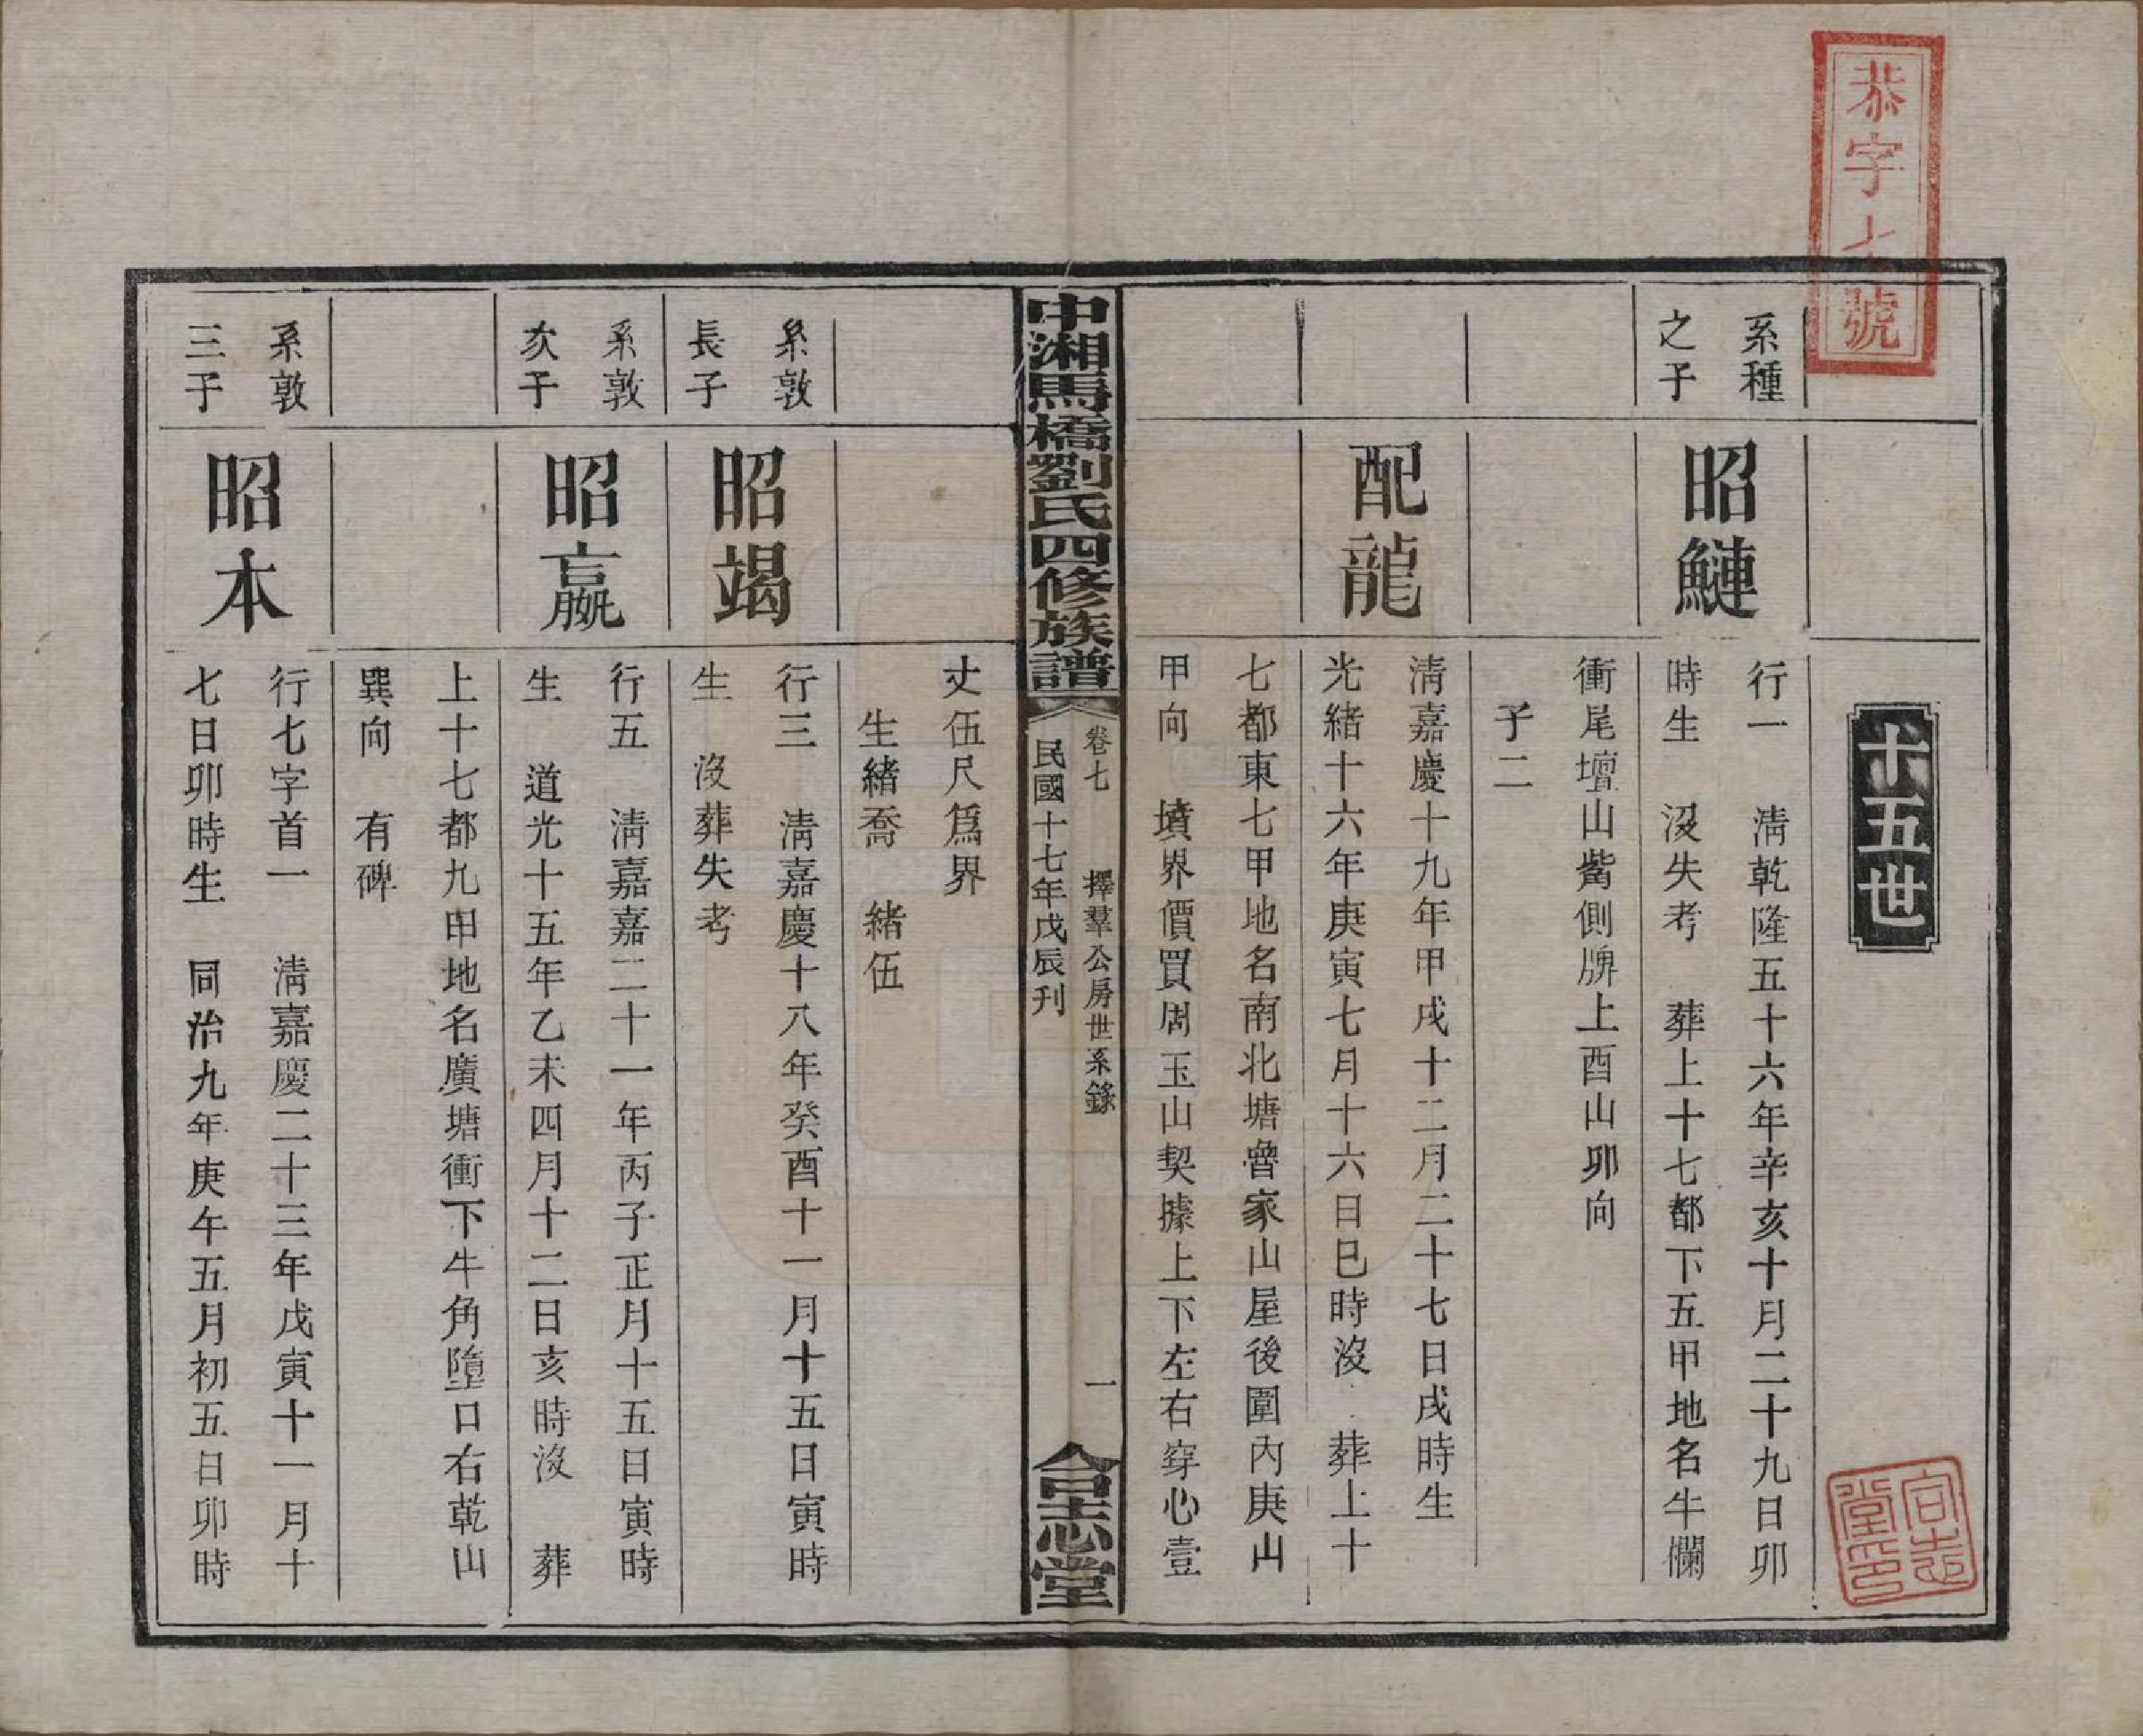 恭字七號
十五世
系種
之子
昭鰱
行一　清乾隆五十六年辛亥十月二十九日卯
時生　沒失考　葬上十七都下五甲地名牛欄
衝尾壇山觜側牌上酉山卯向
子二
配龍
清嘉慶十九年甲戌十二月二十七日戌時生
光緒十六年庚寅七月十六日巳時沒　葬上十
七都東七甲地名南北塘魯家山屋後圍內庚山
甲向　墳界價買周玉山契據上下左右穿心壹
中湘馬橋劉氏四修族譜
卷七　擇羣公房世系錄　一
民國十七年戊辰刊
合志堂
丈伍尺爲界
生緒喬　緒伍
系敦
長子
昭竭
行三　清嘉慶十八年癸酉十一月十五日寅時
生　沒葬失考
系敦
次子
昭嬴
行五　清嘉嘉二十一年丙子正月十五日寅時
生　道光十五年乙未四月十二日亥時沒　葬
上十七都九甲地名廣塘衝下牛角墮口右乾山
巽向　有碑
系敦
三子
昭本
行七字首一　清嘉慶二十三年戊寅十一月十
七日卯時生　同治九年庚午五月初五日卯時
合志
堂印